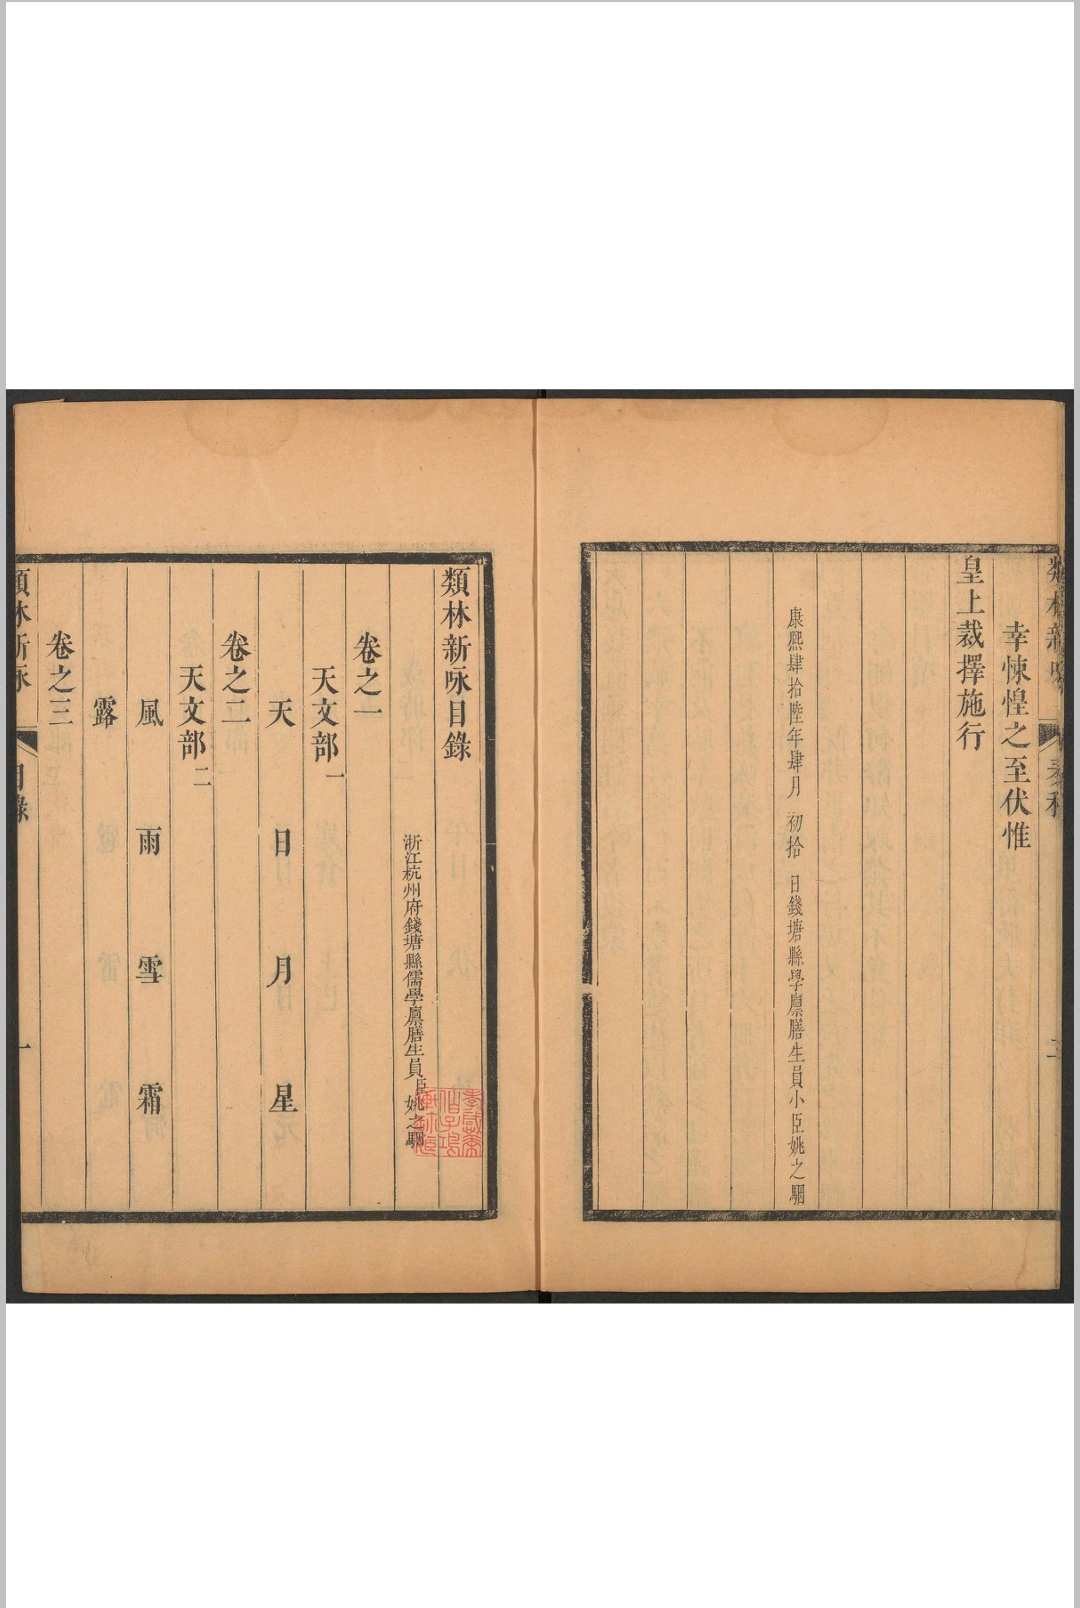 幸悚惶之至伏惟
皇上裁擇施行
康熙肆拾陸年肆月初拾日錢塘縣學廩膳生員小臣姚之駰
類林新咏目錄
浙江杭州府錢塘縣儒學廩膳生員臣姚之駰
卷之一
天文部一
天 日 月 星
卷之二
天文部二
風 雨 雪 霜
露
卷之三
類林新咏 目錄 一